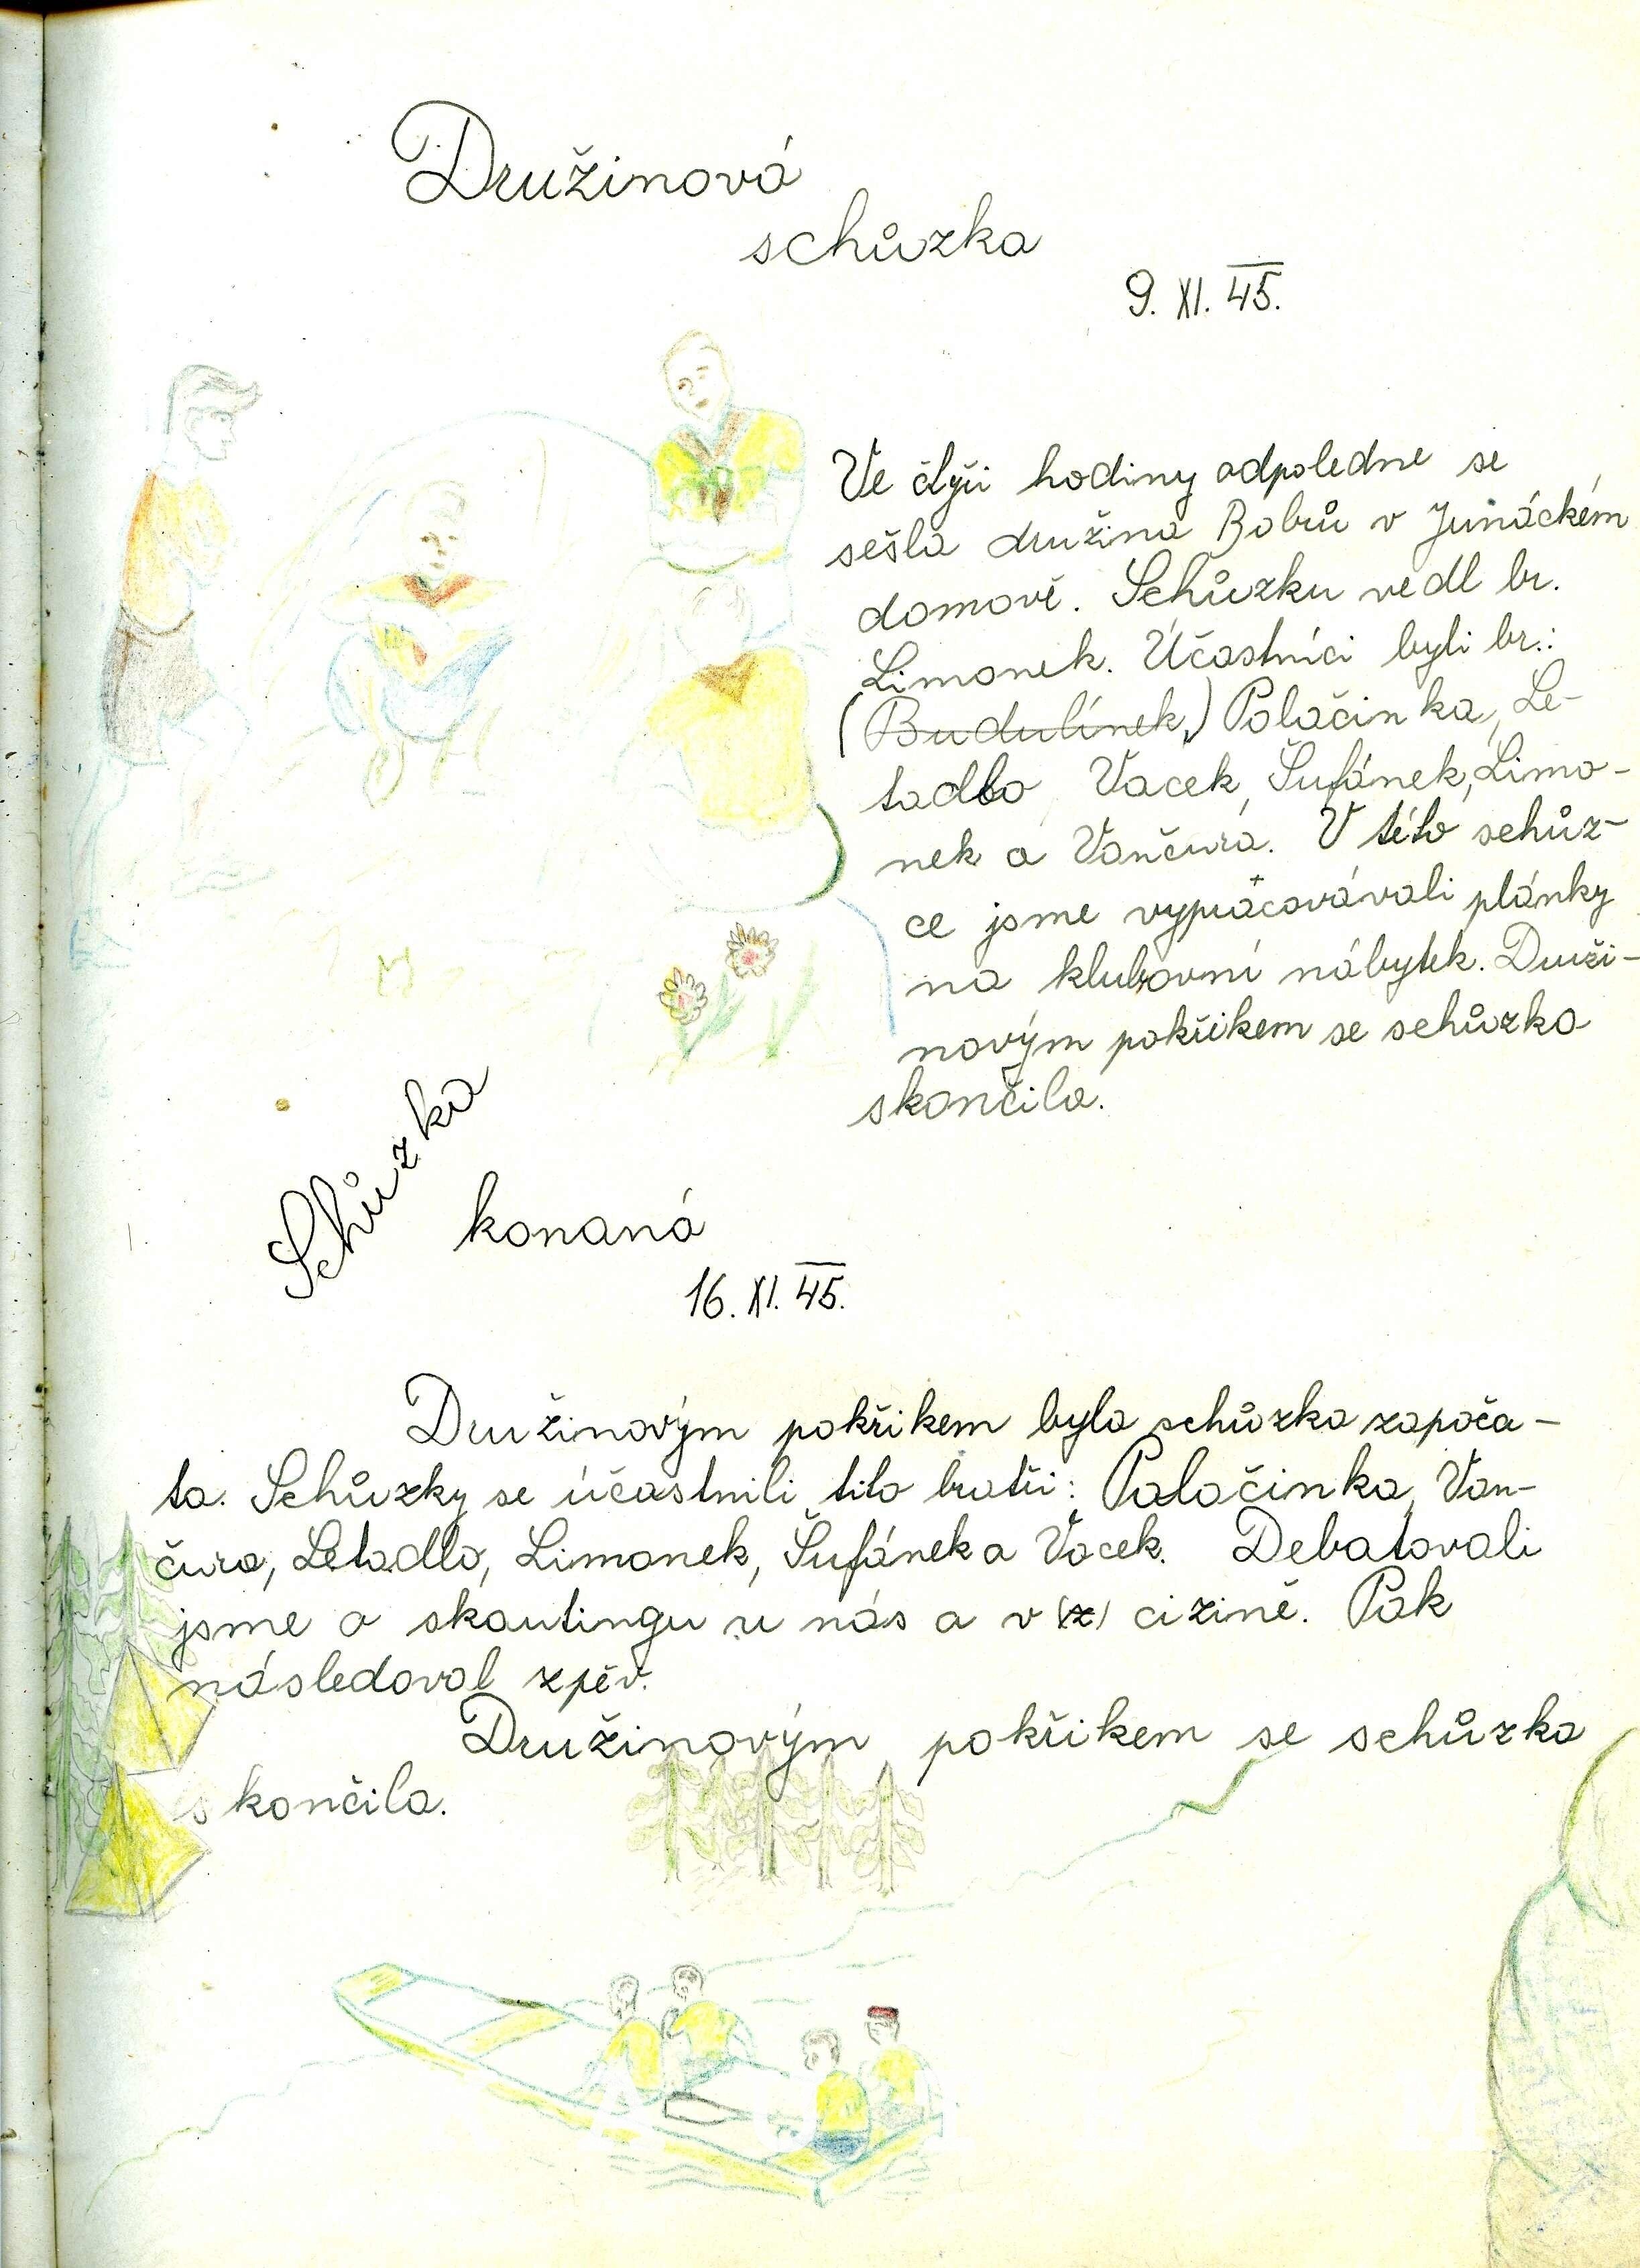 Družinová
schůzka
9. XI. 45.
Ve čtyři hodiny odpoledne se
sešla družina Bobrů v Junáckém
domově. Schůzku vedl br.
Limonek. Účastníci byli br.:
(Budulínek,) Palačinka, Le-
tadlo, Vacek, Šufánek, Limo-
nek a Vančura. V této schůz-
ce jsme vypracovávali plánky
na klubovní nábytek. Druži-
novým pokřikem se schůzka
skončila.
Schůzka
konaná
16. XI. 45.
Družinovým pokřikem byla schůzka započa-
ta. Schůzky se účastnili tito bratři: Palačinka, Van-
čura, Letadlo, Limonek, Šufánek a Vacek. Debatovali
jsme o skautingu u nás a v (z) cizině. Pak
následoval zpěv.
Družinovým pokřikem se schůzka
skončila.